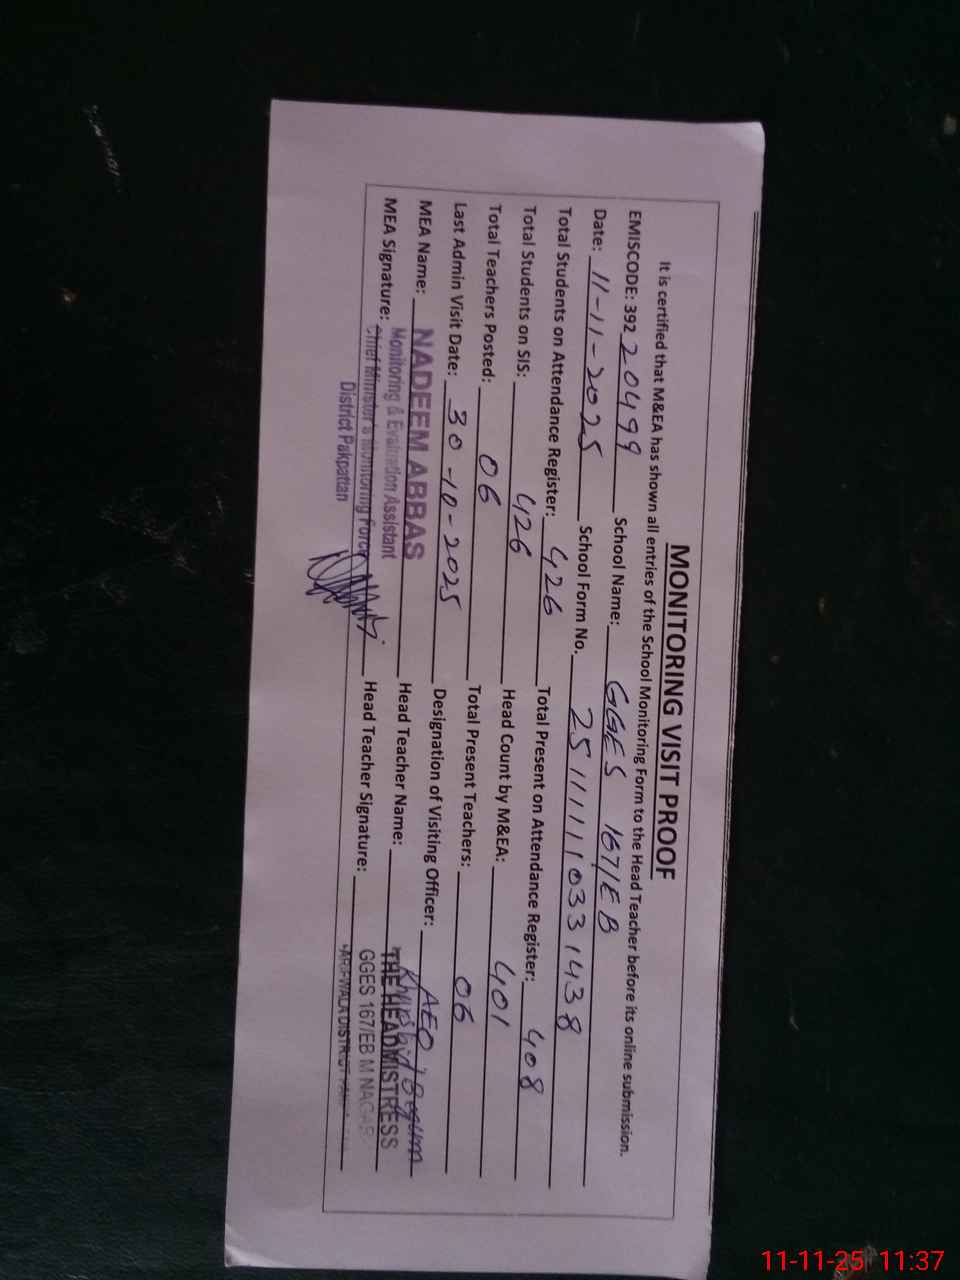 MONITORING VISIT PROOF
It is certified that M&EA has shown all entries of the School Monitoring Form to the Head Teacher before its online submission.
EMISCODE: 392 20499 School Name: GGES 167/EB
Date: 11-11-2025 School Form No. 251111033 1438
Total Students on Attendance Register: 426 Total Present on Attendance Register: 408
Total Students on SIS: 426 Head Count by M&EA: 401
Total Teachers Posted: 06 Total Present Teachers: 06
Last Admin Visit Date: 30-10-2025 Designation of Visiting Officer: AEO
MEA Name: NADEEM ABBAS Head Teacher Name: Khurshid Begum
Monitoring & Evaluation Assistant THE HEADMISTRESS
MEA Signature: Chief Minister's Monitoring Force Head Teacher Signature: GGES 167/EB M NAGAR
District Pakpattan ARIFWALA DISTRICT
11-11-25 11:37